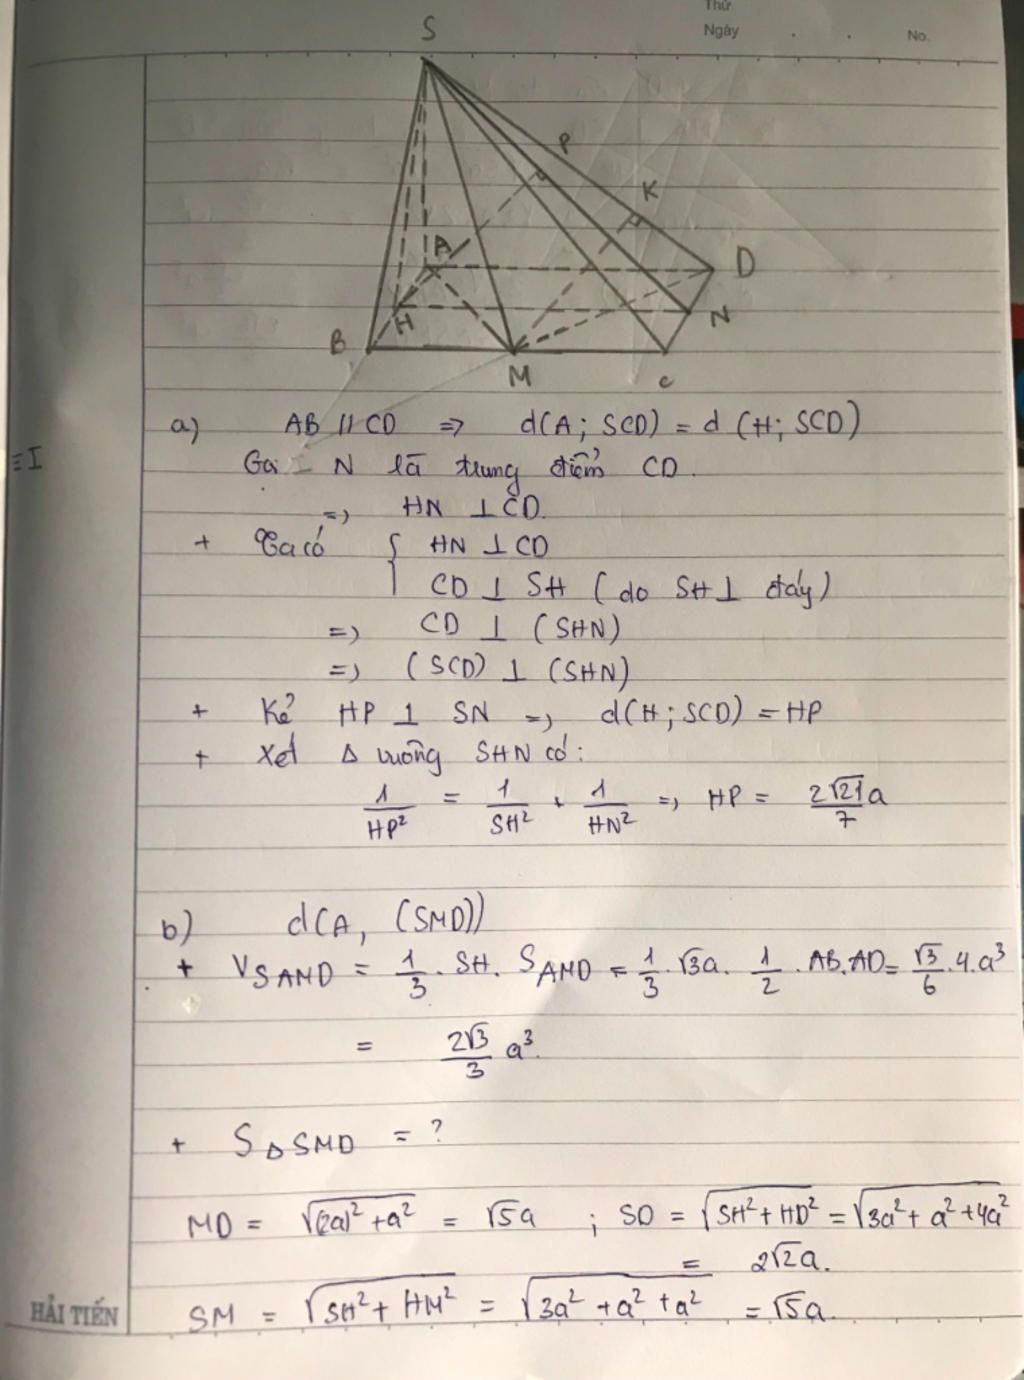 Thứ
Ngày . . No.
S
P
K
A
D
H
N
B
M
C
a) AB // CD => d(A; SCD) = d (H; SCD)
Gọi N là trung điểm CD.
=> HN ⊥ CD.
+ Ta có { HN ⊥ CD
CD ⊥ SH (do SH ⊥ đáy)
=> CD ⊥ (SHN)
=> (SCD) ⊥ (SHN)
+ Kẻ HP ⊥ SN => d(H; SCD) = HP
+ Xét Δ vuông SHN có:
1/HP² = 1/SH² + 1/HN² => HP = 2√21a/7
b) d(A, (SMD))
+ V SAMD = 1/3 . SH. S AMD = 1/3 . √3a . 1/2 . AB.AD = √3/6 . 4.a³
= 2√3/3 a³.
+ S Δ SMD = ?
MD = √((2a)² + a²) = √5a ; SD = √(SH² + HD²) = √(3a² + a² + 4a²)
= 2√2a.
SM = √(SH² + HM²) = √(3a² + a² + a²) = √5a.
HẢI TIẾN